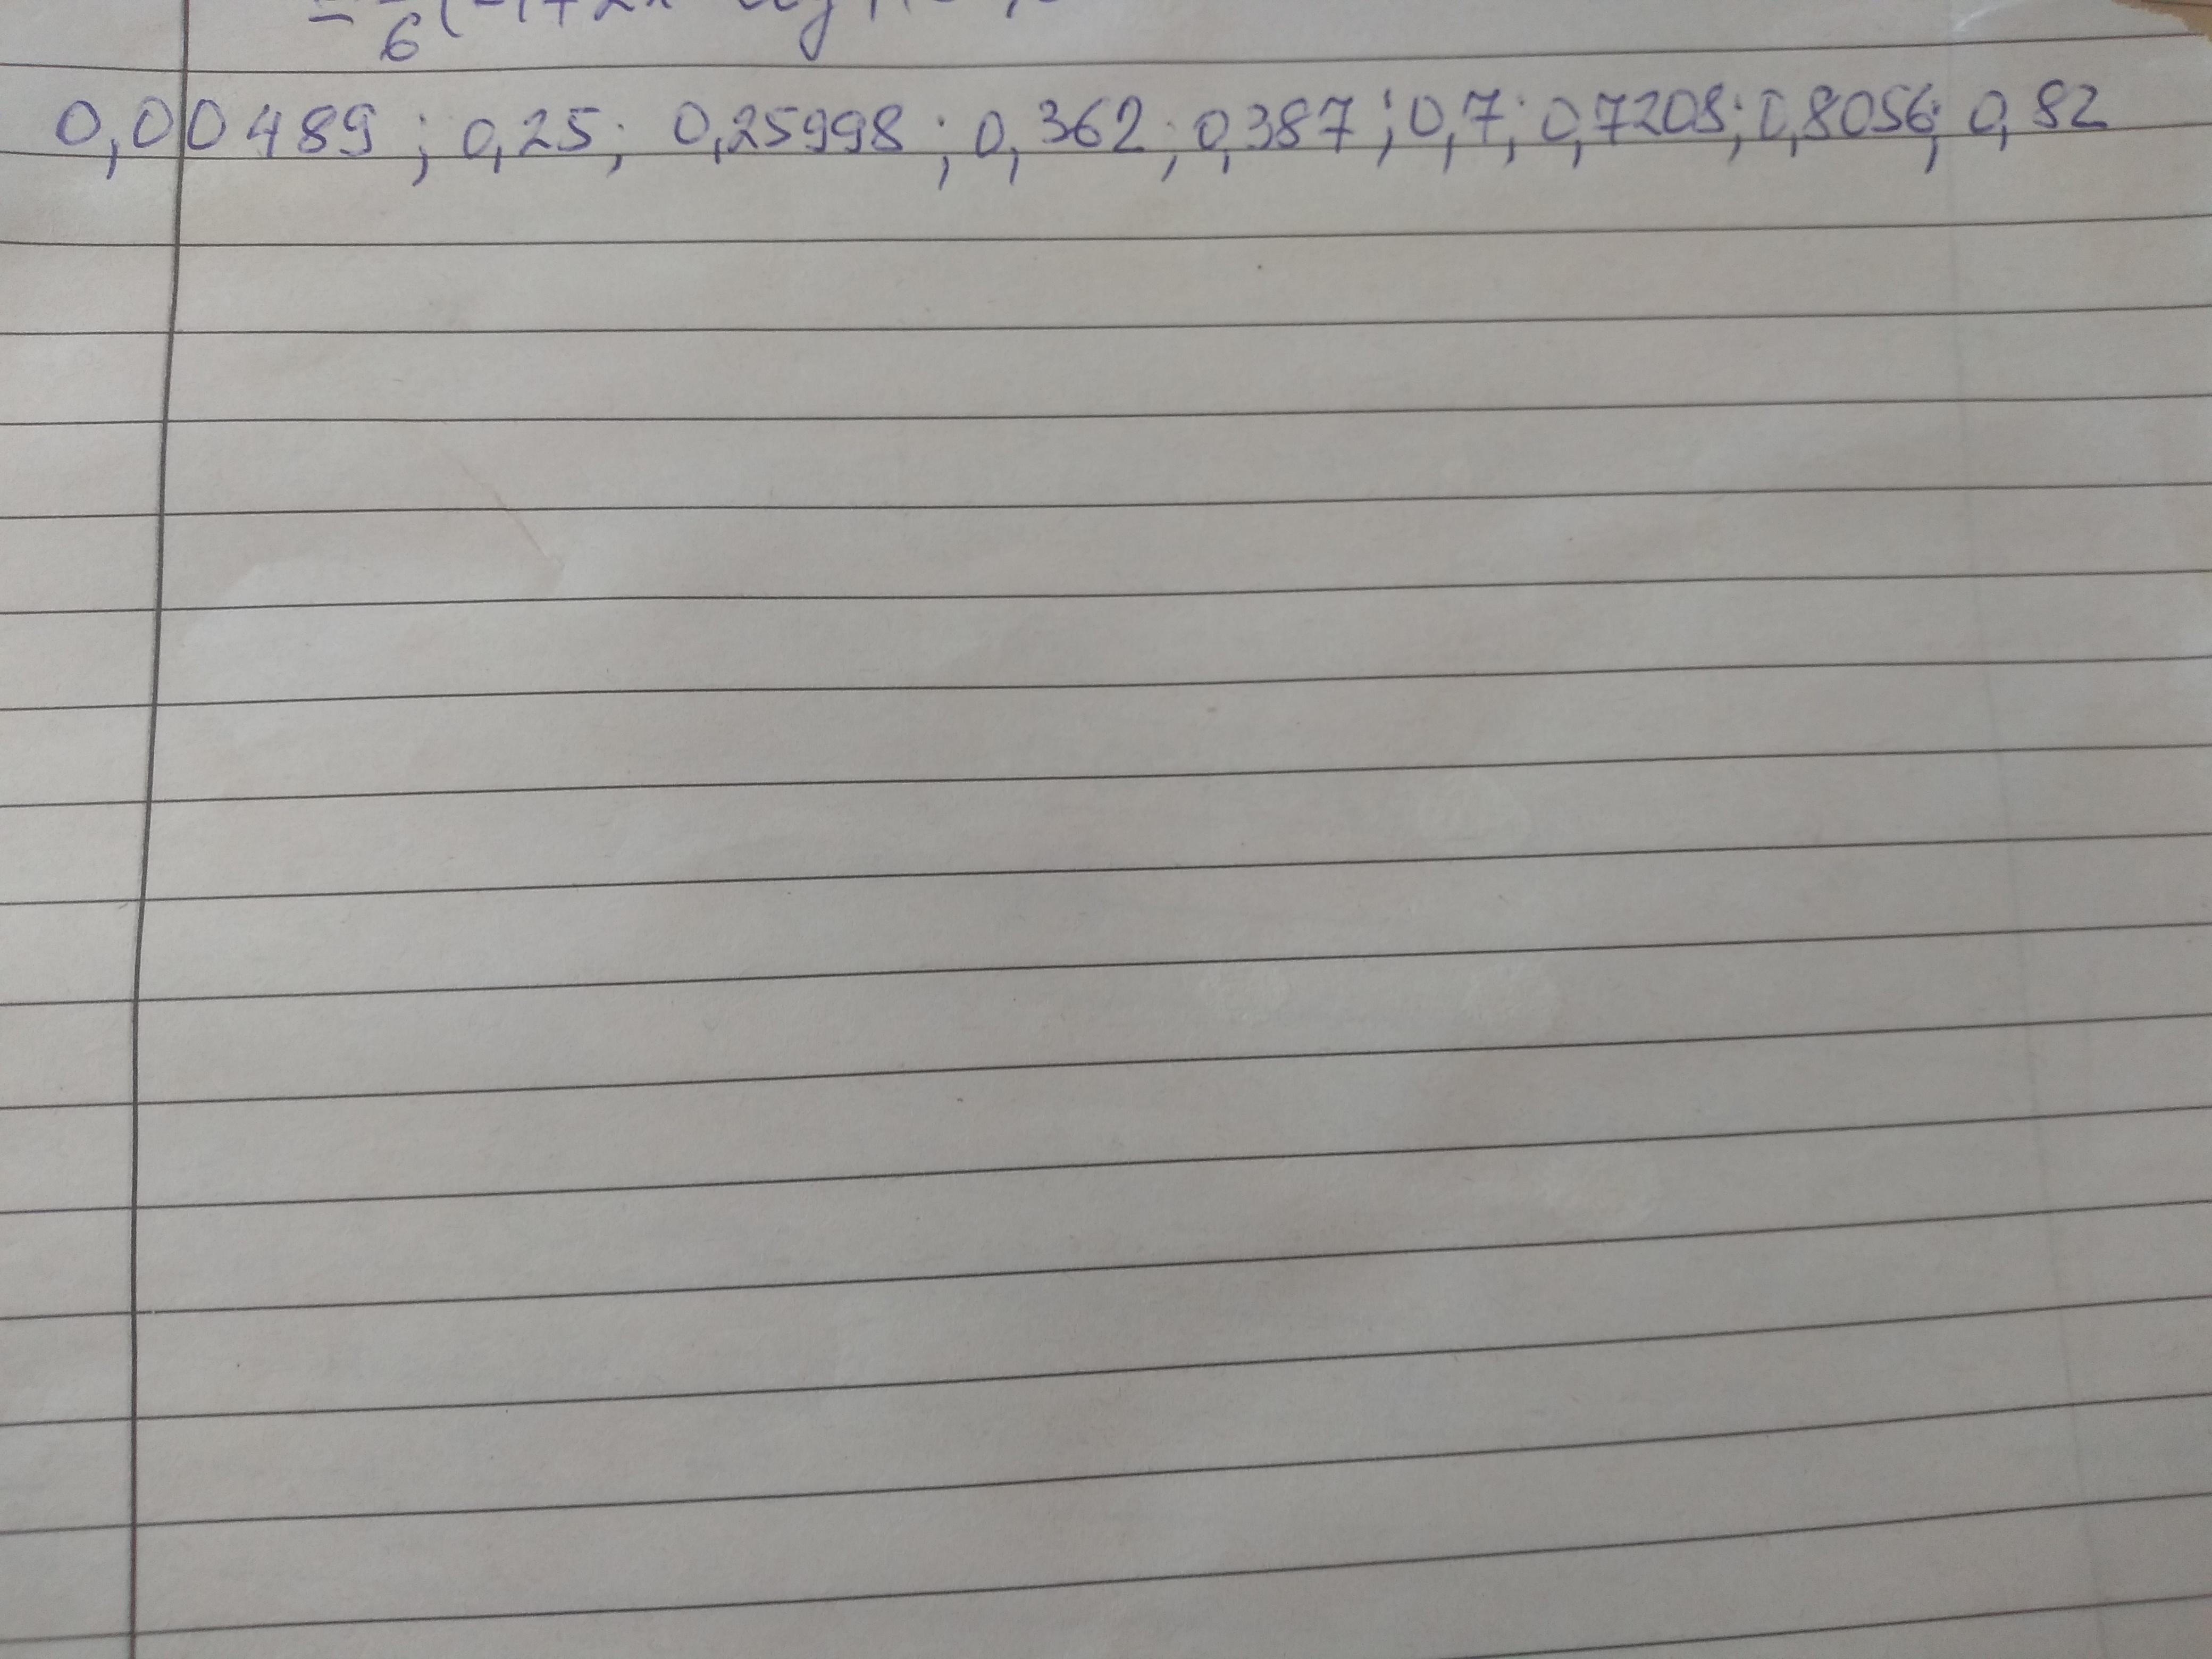 0,00489; 0,25; 0,25998; 0,362; 0,387; 0,7; 0,7208; 0,8056; 0,82